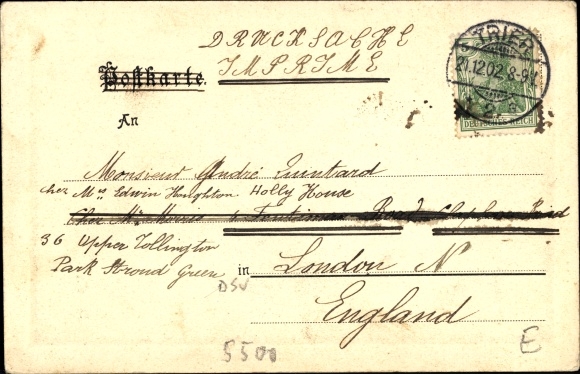 DRUCKSACHE
IMPRIME
Postkarte.
TRIER
5
21.12.02.8-9V.
DEUTSCHES REICH
An
Monsieur André Quintard
chez Mrs Edwin Houghton Holly House
Chez Mr Morris Road Clapham
36 Upper Tollington
Park Stroud Green
in London N
DSV
England
5500
E